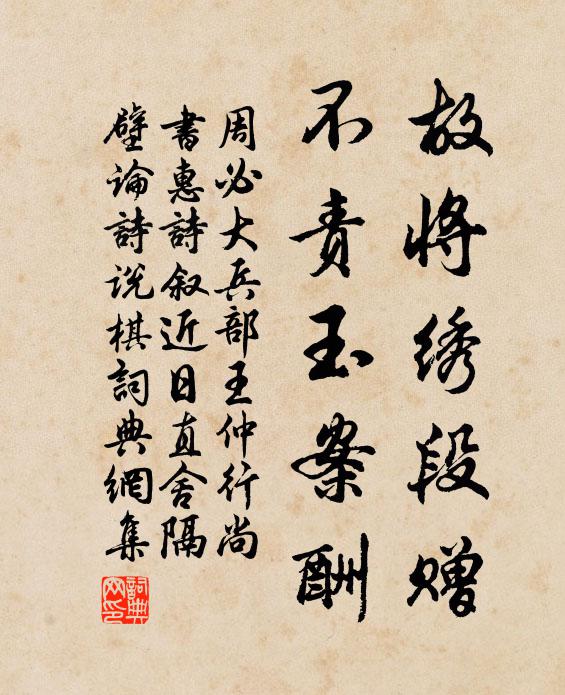 故将绣段赠
不责玉案酬
周必大兵部王仲行尚
書惠詩叙近日直舍隔
壁論詩说棋詞典網集
詞典网印